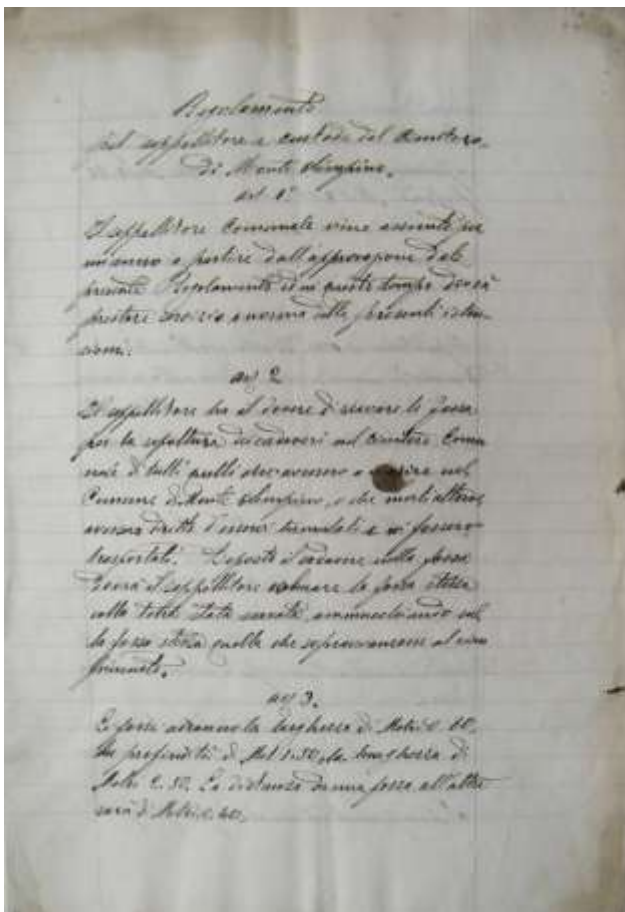 Regolamento
pel seppellitore e custode del Cimitero
di Monte Olimpino.
art 1º
Il seppellitore Comunale viene assunto per
un anno a partire dall'approvazione del
presente Regolamento ed in questo tempo dovrà
prestare servizio a norma delle presenti istru
zioni.
art 2
Il seppellitore ha il dovere di scavare le fosse
per la sepoltura dei cadaveri nel Cimitero Comu
nale di tutti quelli che avranno a morire nel
Comune di Monte Olimpino, o che morti altrove
avranno diritto d'esservi tumulati e vi fossero
trasportati. Deposto il cadavere nella fossa
dovrà il seppellitore colmare la fossa stessa
colla terra stata scavata ammucchiando sul
la fossa stessa quella che sopravanzasse al riem
pimento.
art 3.
Le fosse avranno la larghezza di Metri 0.80,
la profondità di Met 1.50, la lunghezza di
Metri 2.50. La distanza da una fossa all'altra
sarà di Metri 0.40.